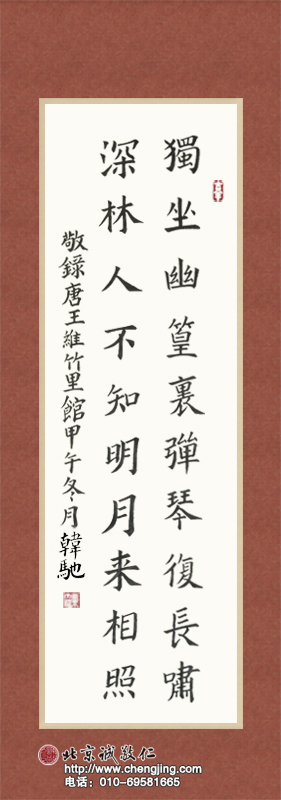 獨坐幽篁裏彈琴復長嘯
深林人不知明月来相照
敬錄唐王維竹里館甲午冬月韓馳
北京诚敬仁
http://www.chengjing.com
电话：010-69581665